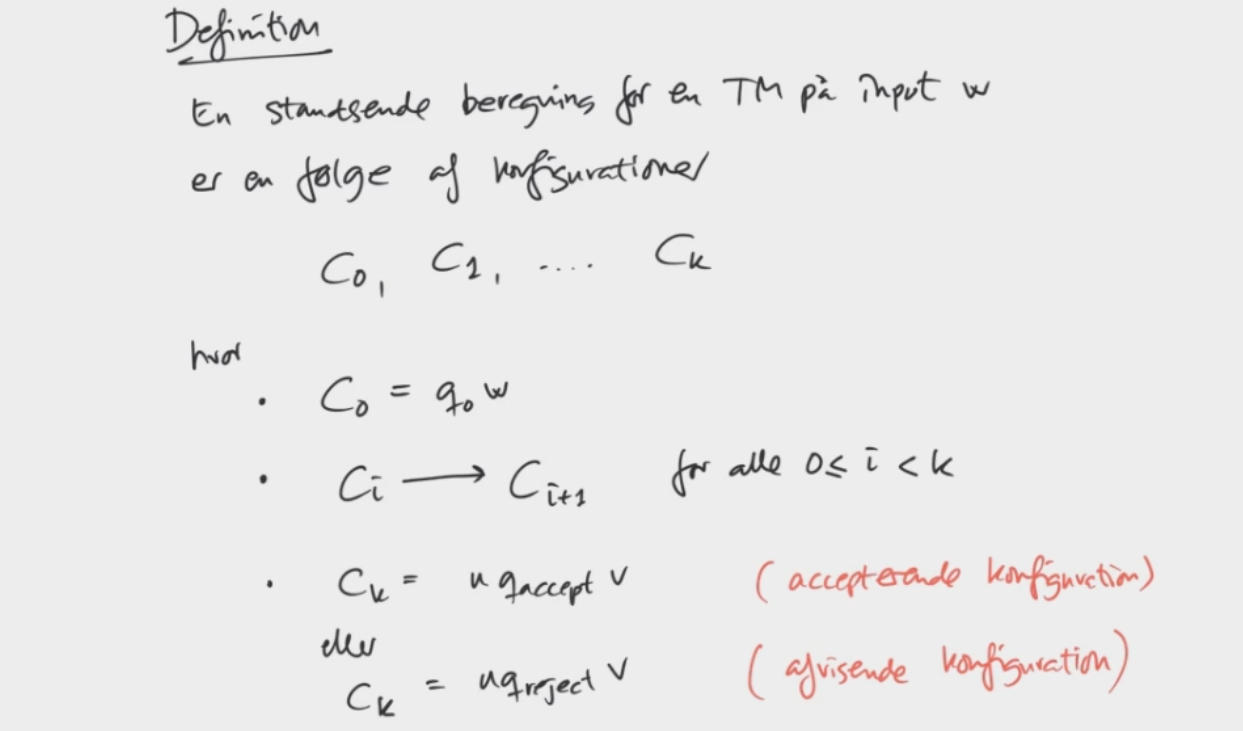 Definition
En standsende beregning for en TM på input w
er en følge af konfigurationer
C₀, C₁, .... Cₖ
hvor
• C₀ = q₀ w
• Cᵢ → Cᵢ₊₁ for alle 0 ≤ i < k
• Cₖ = u q_accept v (accepterende konfiguration)
eller
Cₖ = u q_reject v (afvisende konfiguration)